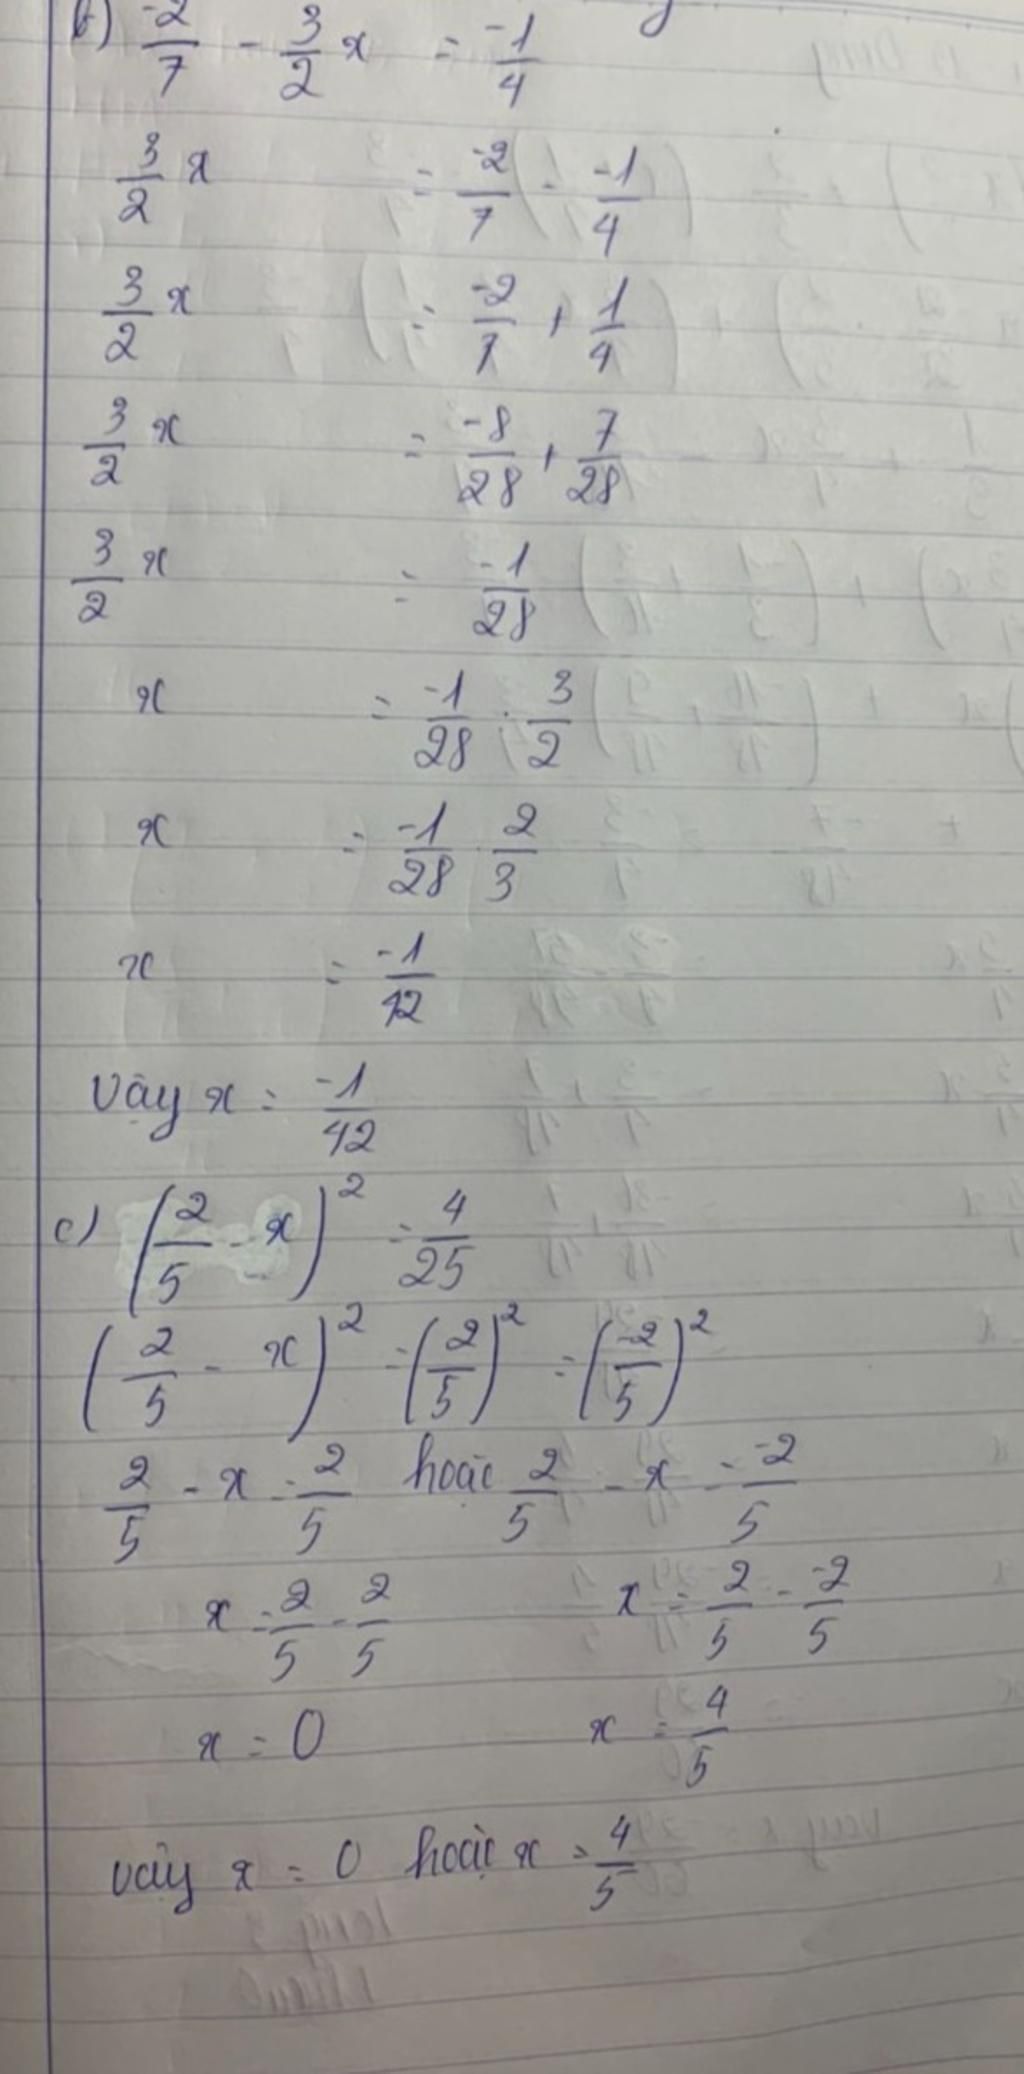 b) -2/7 - 3/2 x = -1/4
3/2 x = -2/7 - -1/4
3/2 x = -2/7 + 1/4
3/2 x = -8/28 + 7/28
3/2 x = -1/28
x = -1/28 : 3/2
x = -1/28 . 2/3
x = -1/42
Vậy x = -1/42
c) (2/5 - x)² = 4/25
(2/5 - x)² = (2/5)² = (-2/5)²
2/5 - x = 2/5 hoặc 2/5 - x = -2/5
x = 2/5 - 2/5 x = 2/5 - -2/5
x = 0 x = 4/5
Vậy x = 0 hoặc x = 4/5